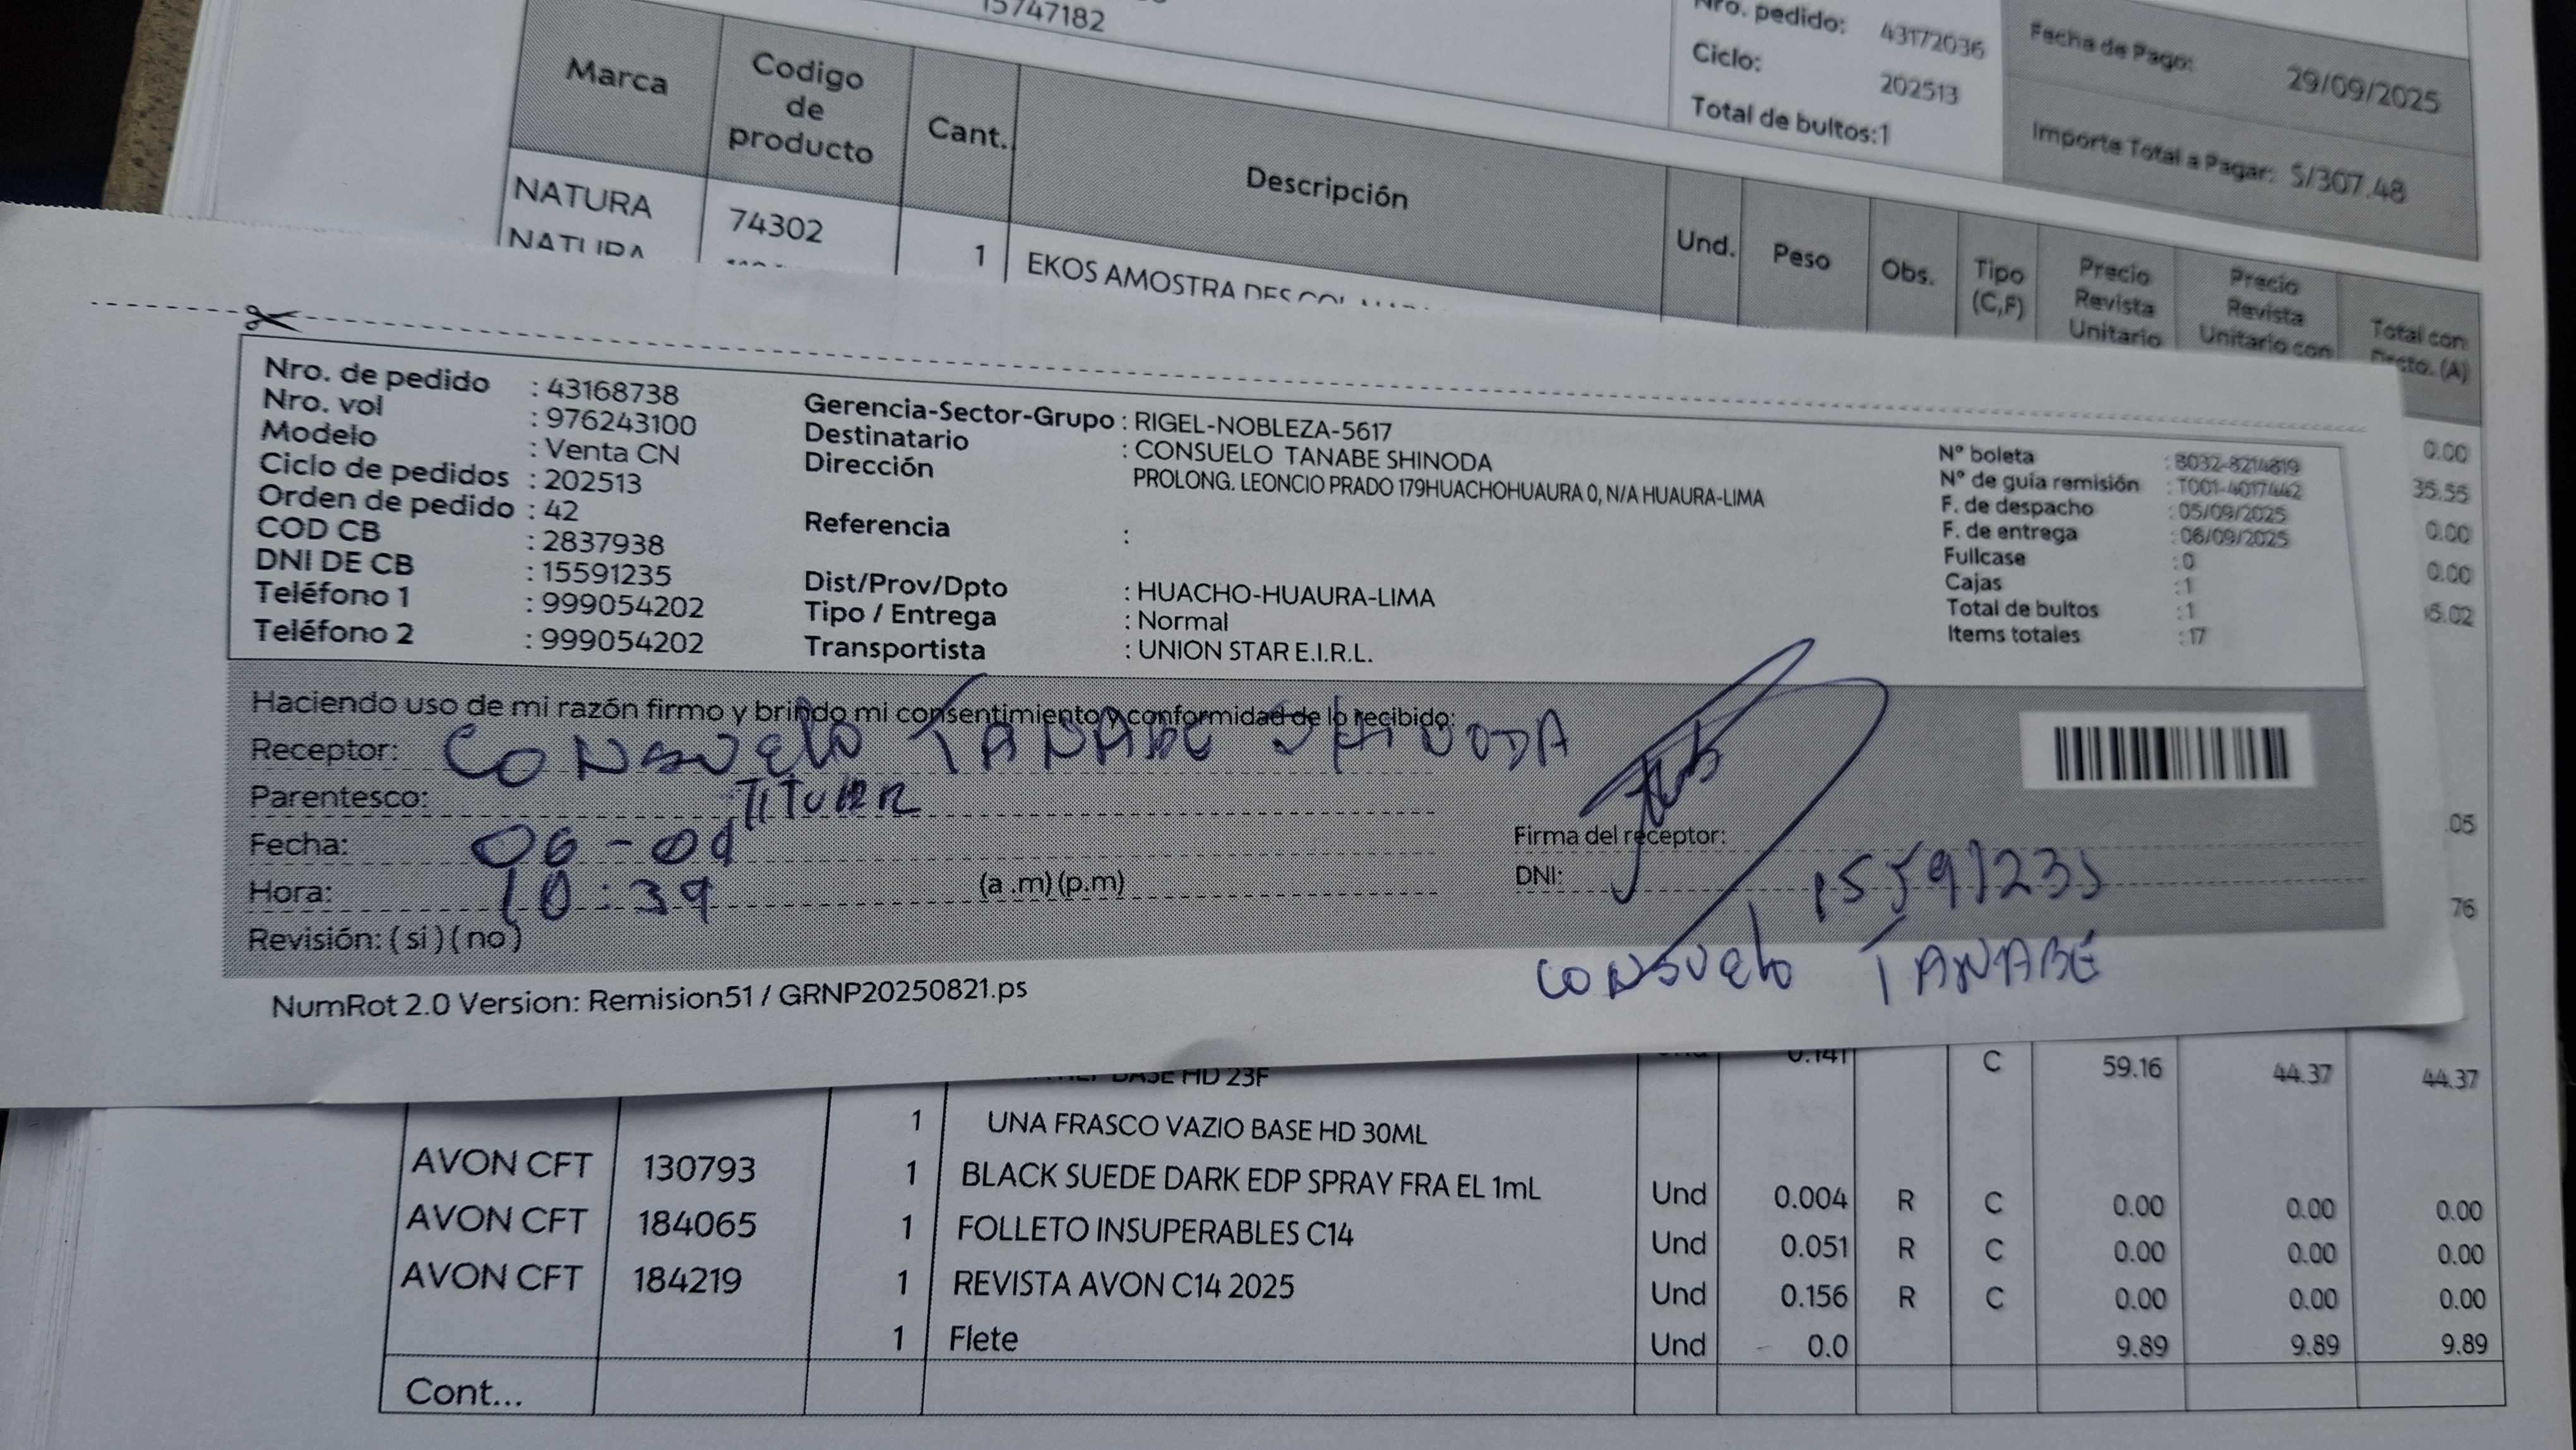 15747182
Nro. pedido: 43172036
Ciclo: 202513
Total de bultos:1
Fecha de Pago: 29/09/2025
Importe Total a Pagar: S/307.48
Marca Codigo de producto Cant. Descripción Und. Peso Obs. Tipo (C,F) Precio Revista Unitario Precio Revista Unitario con Total con Dscto. (A)
NATURA 74302 1 EKOS AMOSTRA
NATURA
0.00
35.55
0.00
0.00
Nro. de pedido : 43168738
Nro. vol : 976243100
Modelo : Venta CN
Ciclo de pedidos : 202513
Orden de pedido : 42
COD CB : 2837938
DNI DE CB : 15591235
Teléfono 1 : 999054202
Teléfono 2 : 999054202
Gerencia-Sector-Grupo : RIGEL-NOBLEZA-5617
Destinatario : CONSUELO TANABE SHINODA
Dirección PROLONG. LEONCIO PRADO 179HUACHOHUAURA 0, N/A HUAURA-LIMA
Referencia :
Dist/Prov/Dpto : HUACHO-HUAURA-LIMA
Tipo / Entrega : Normal
Transportista : UNION STAR E.I.R.L.
N° boleta : B032-8214819
N° de guía remisión : T001-4017442
F. de despacho : 05/09/2025
F. de entrega : 06/09/2025
Fullcase : 0
Cajas : 1
Total de bultos : 1
Items totales : 17
Haciendo uso de mi razón firmo y brindo mi consentimiento y conformidad de lo recibido:
Receptor: CONSUELO TANABE SHINODA
Parentesco: TITULAR
Fecha: 06-09
Hora: 10:39 (a .m) (p.m)
Revisión: ( si ) ( no )
Firma del receptor:
DNI: 15591235
CONSUELO TANABE
NumRot 2.0 Version: Remision51 / GRNP20250821.ps
05
76
BASE HD 23F 0.141 C 59.16 44.37 44.37
1 UNA FRASCO VAZIO BASE HD 30ML
AVON CFT 130793 1 BLACK SUEDE DARK EDP SPRAY FRA EL 1mL Und 0.004 R C 0.00 0.00 0.00
AVON CFT 184065 1 FOLLETO INSUPERABLES C14 Und 0.051 R C 0.00 0.00 0.00
AVON CFT 184219 1 REVISTA AVON C14 2025 Und 0.156 R C 0.00 0.00 0.00
1 Flete Und 0.0 9.89 9.89 9.89
Cont...